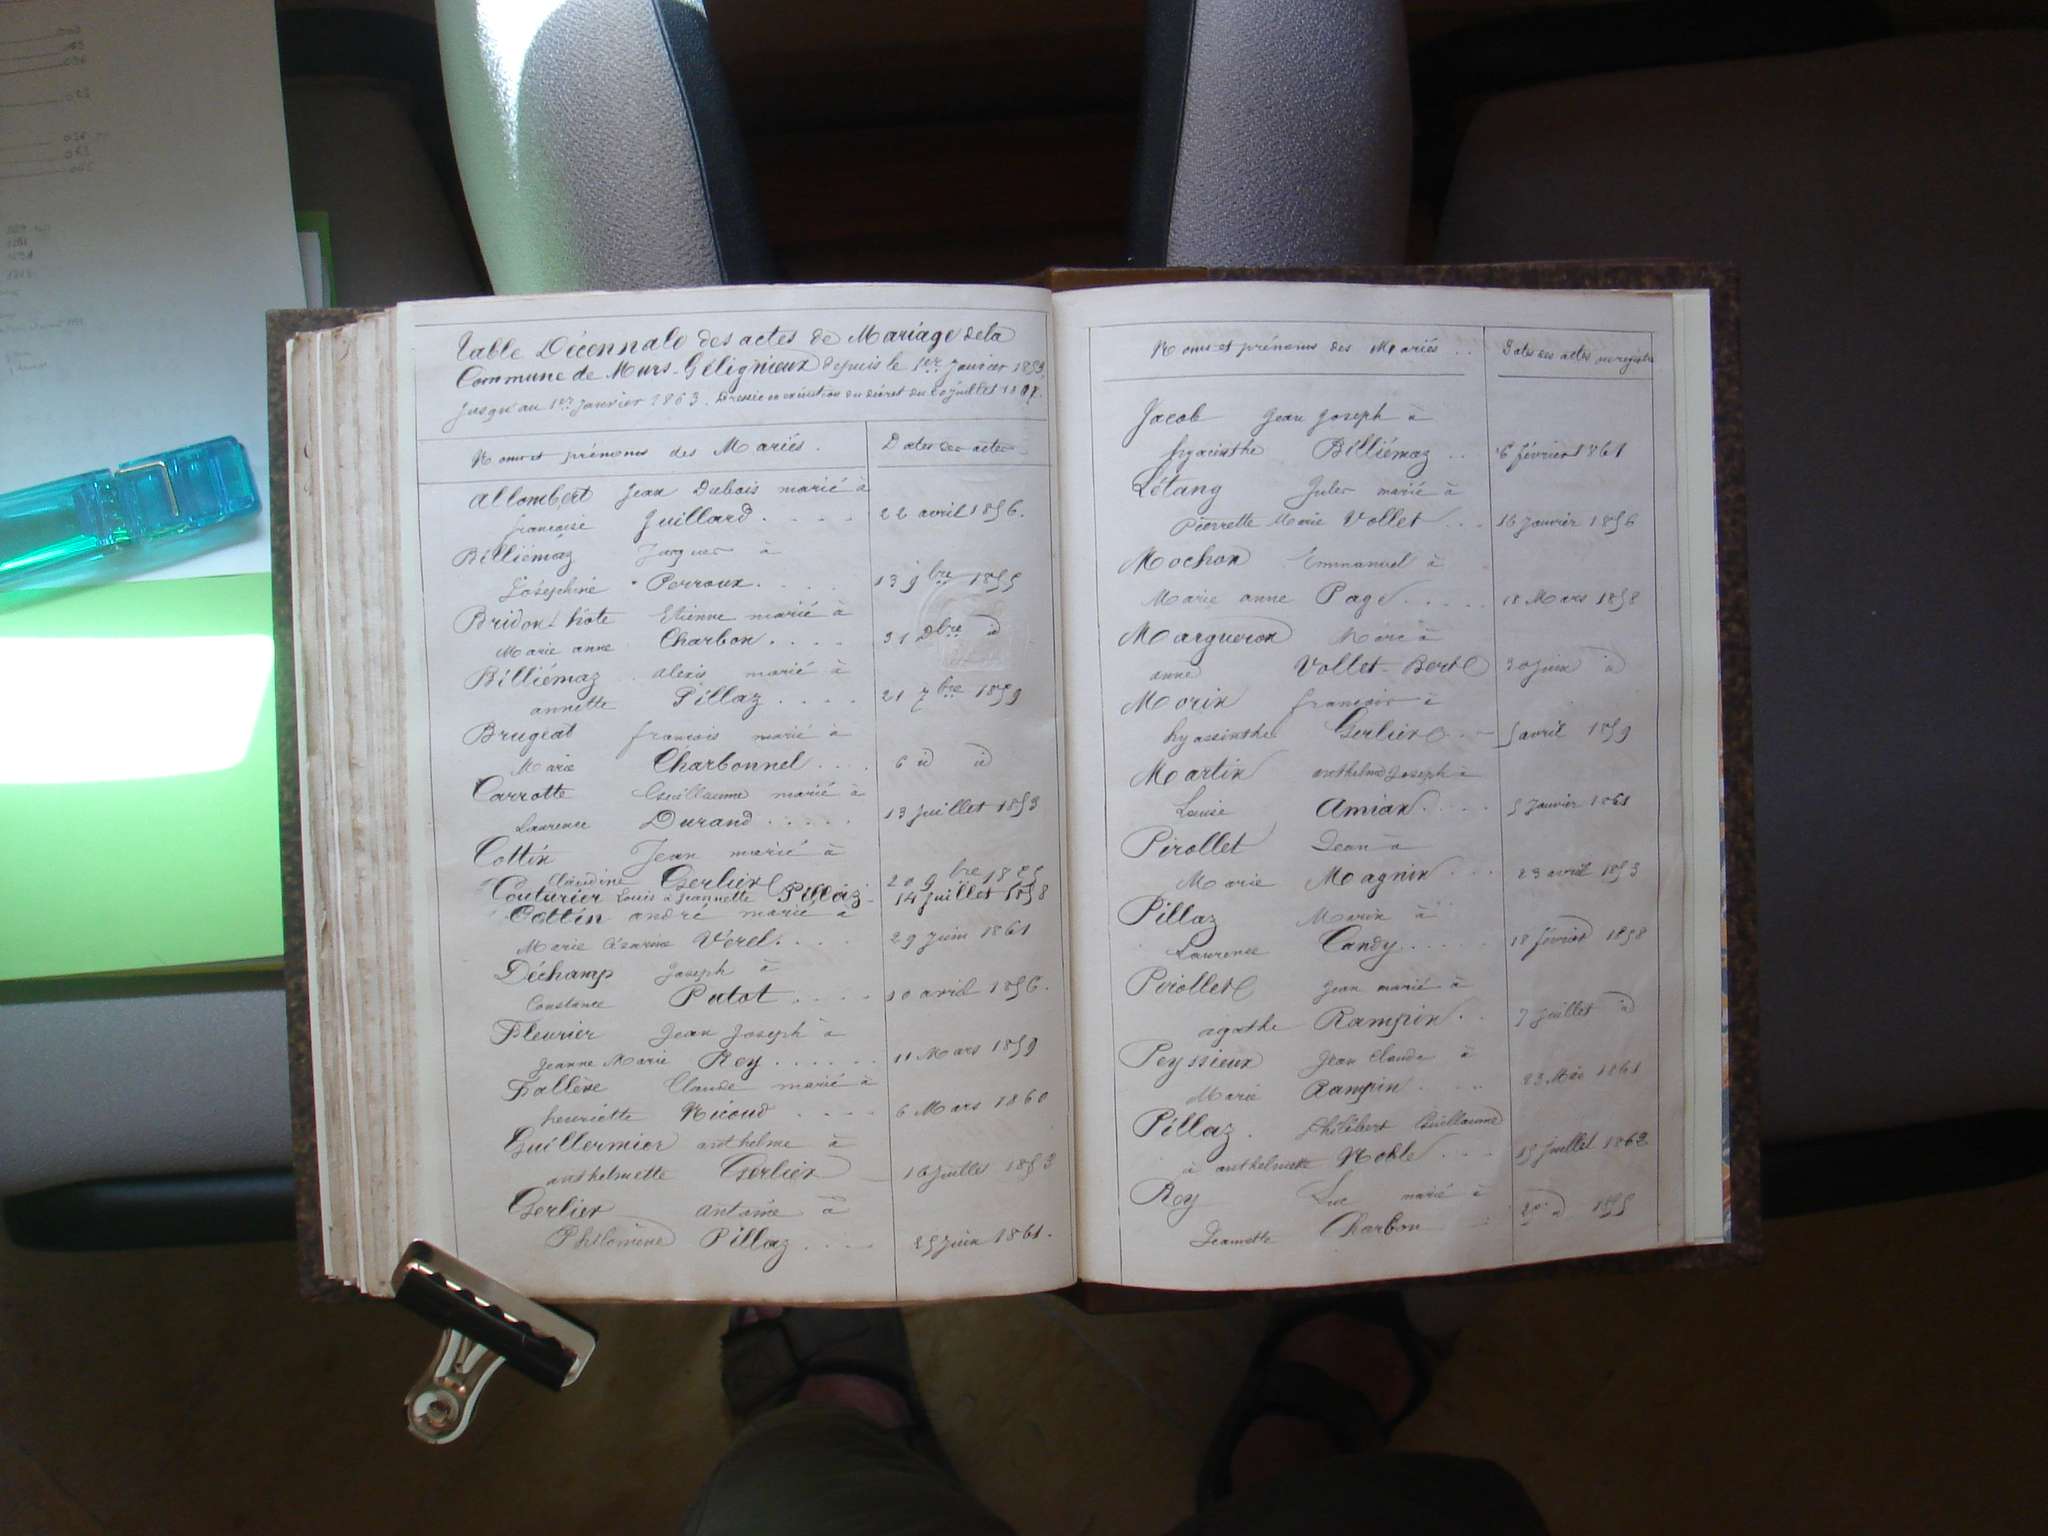 Table Décennale des actes de Mariage dela
Commune de Murs-Gélignieux depuis le 1er Janvier 1853,
jusqu'au 1er Janvier 1863. Dressée en exécution du décret du 20 juillet 1807.
Noms et prénoms des Mariés.
Dates des actes
Allombert Jean Dubois marié à
françoise Guillard.... 22 avril 1856.
Billiémaz Jacques à
Joséphine Perroux.... 13 9bre 1855
Bridon-hôte Etienne marié à
Marie anne Charbon.... 31 Dbre id
Billiémaz alexis marié à
annette Pillaz.... 21 7bre 1859
Brugeat françois marié à
Marie Charbonnel.... 6 id id
Carrotte Guillaume marié à
Laurence Durand..... 13 juillet 1853
Cottin Jean marié à
Claudine Gerlier 20 9bre 1855
Couturier Louis à Jeannette Pillaz 14 juillet 1858
Cottin andré marié à
Marie Césarine Vérel.... 29 juin 1861
Déchamp Joseph à
Constance Putot.... 10 avril 1856.
Fleurier Jean Joseph à
Jeanne Marie Rey...... 11 Mars 1859
Claude marié à
henriette Nicoud.... 6 Mars 1860
Guillermier anthelme à
anthelmette Gerlier 16 juillet 1853
Gerlier antoine à
Philomène Pillaz.... 25 juin 1861.
Noms et prénoms des Mariés..
Dates des actes
Jacob Jean Joseph à
hyacinthe Billiémaz.. 6 février 1861
Létang Jules marié à
Pierrette Marie Vollet... 16 Janvier 1856
Mochon Emmanuel à
Marie anne Page..... 18 Mars 1858
Margueron Marc à
anne Vollet-Bert 30 juin id
Morin françois à
hyassinthe Gerlier... 5 avril 1859
Martin anthelme Joseph à
Louise Amian.... 5 Janvier 1861
Pirollet Jean à
Marie Magnin... 23 avril 1853
Pillaz Marin à
Laurence Candy..... 18 février 1858
Pirollet Jean marié à
agathe Rampin.. 7 juillet id
Peyssieux Jean Claude à
Marie Rampin.... 23 Mai 1861
Pillaz. Philibert Guillaume
à anthelmette Noble.... 15 juillet 1862
Rey Luc marié à
Jeannette Charbon 1855